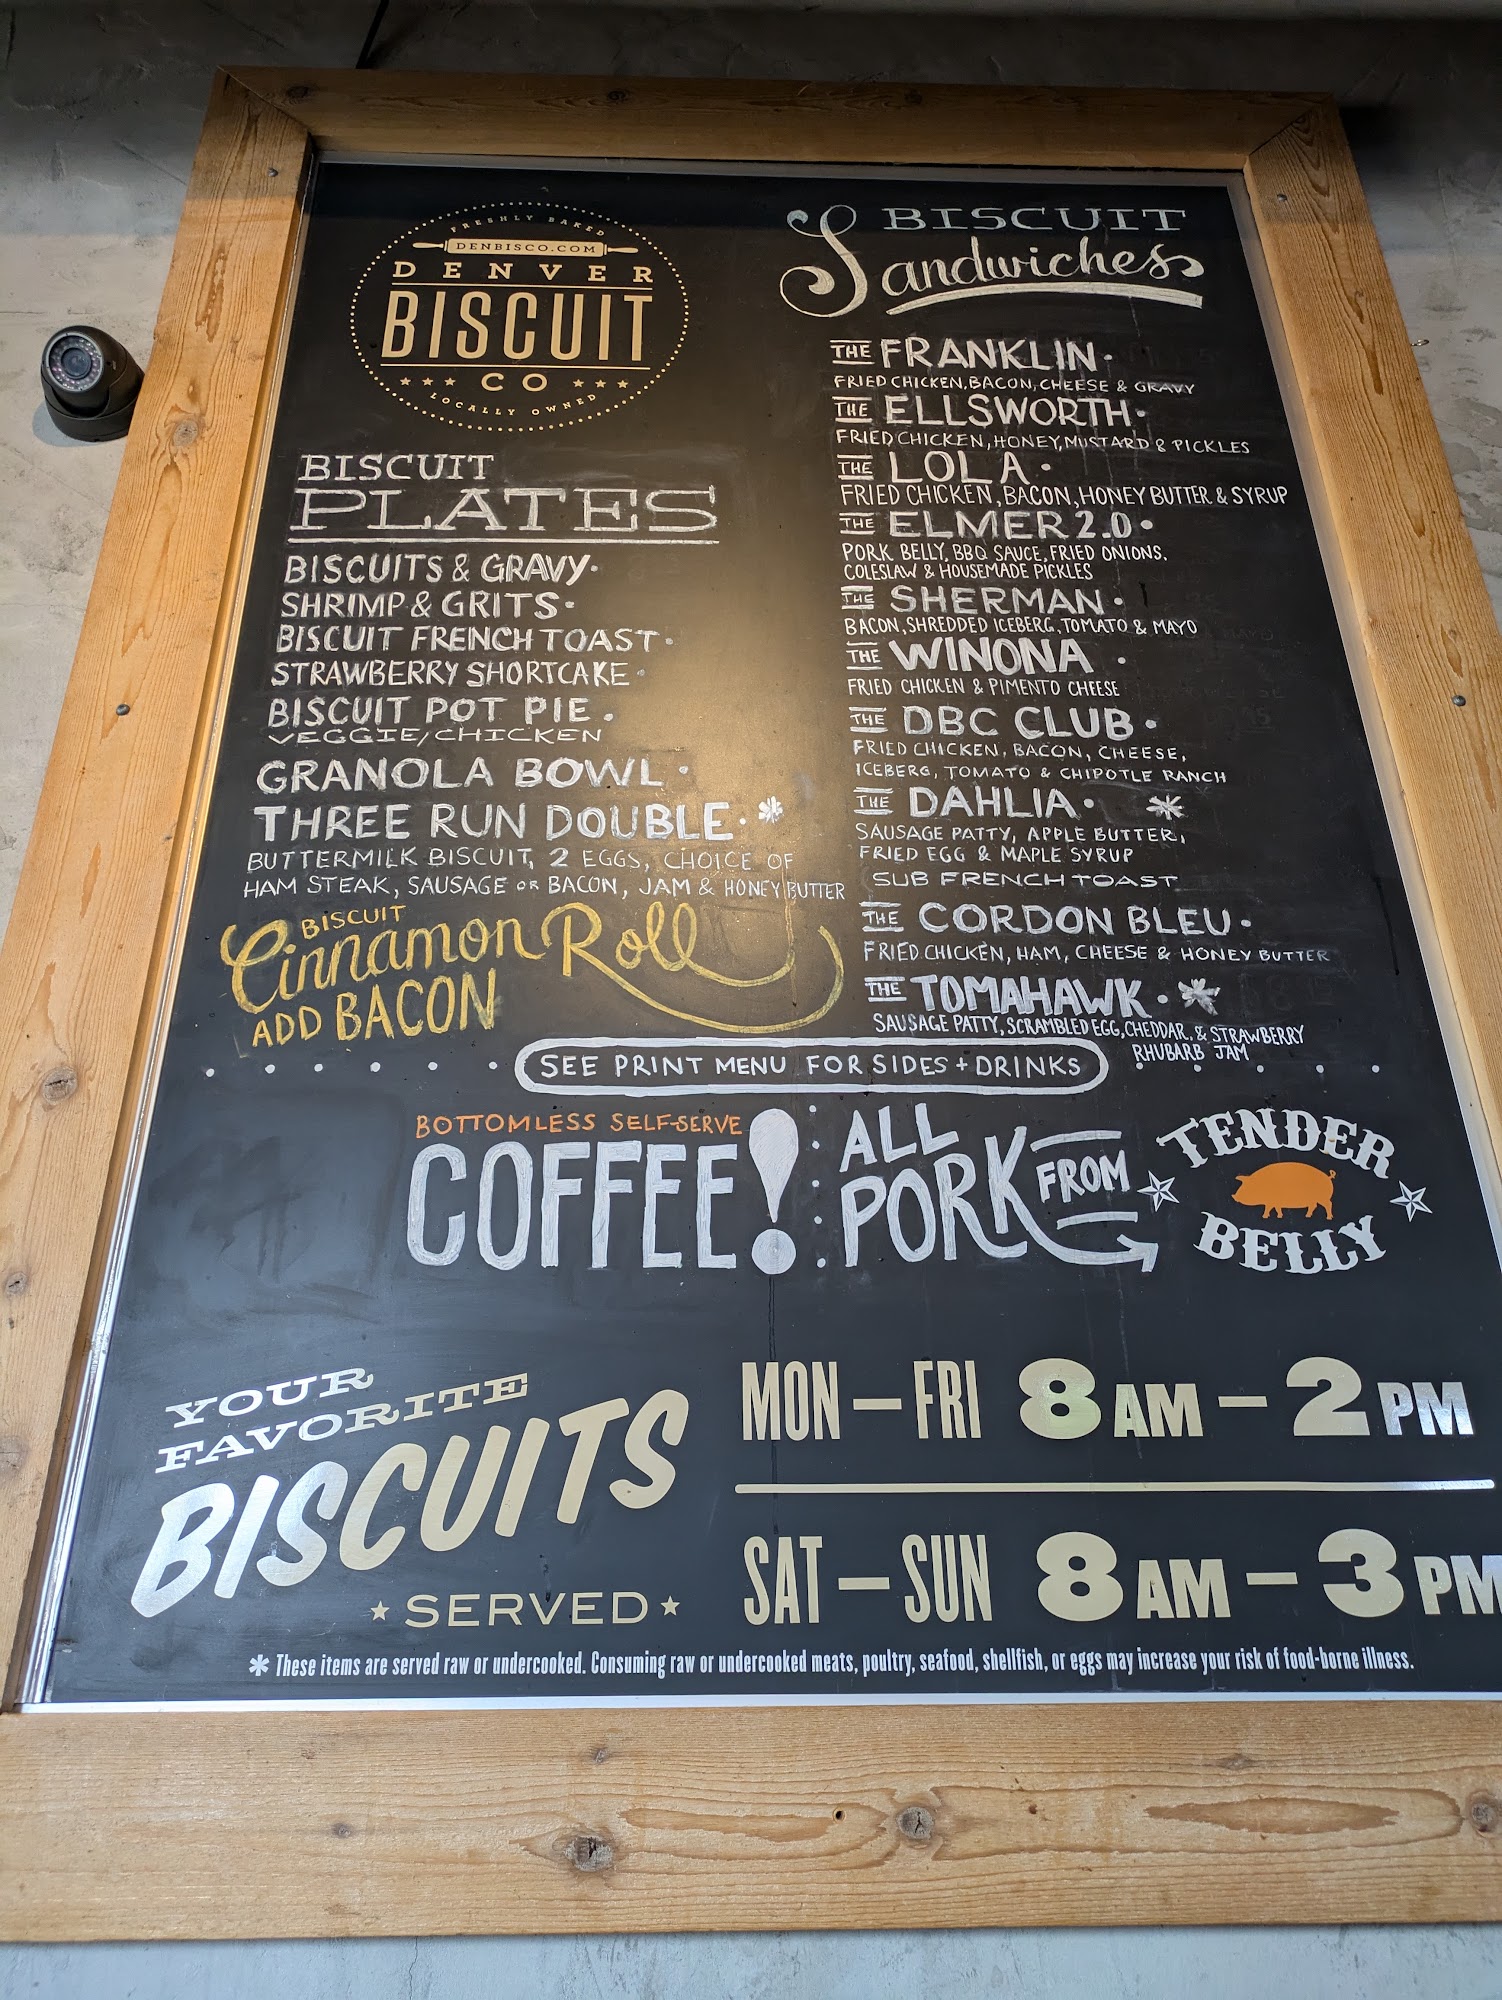 FRESHLY BAKED
DENBISCO.COM
DENVER
BISCUIT
CO
LOCALLY OWNED
BISCUIT
PLATES
BISCUITS & GRAVY•
SHRIMP & GRITS•
BISCUIT FRENCH TOAST•
STRAWBERRY SHORTCAKE•
BISCUIT POT PIE.
VEGGIE/CHICKEN
GRANOLA BOWL•
THREE RUN DOUBLE• *
BUTTERMILK BISCUIT, 2 EGGS, CHOICE OF
HAM STEAK, SAUSAGE OR BACON, JAM & HONEY BUTTER
BISCUIT
Cinnamon Roll
ADD BACON
BISCUIT
Sandwiches
THE FRANKLIN•
FRIED CHICKEN, BACON, CHEESE & GRAVY
THE ELLSWORTH•
FRIED CHICKEN, HONEY, MUSTARD & PICKLES
THE LOLA•
FRIED CHICKEN, BACON, HONEY BUTTER & SYRUP
THE ELMER 2.0•
PORK BELLY, BBQ SAUCE, FRIED ONIONS,
COLESLAW & HOUSEMADE PICKLES
THE SHERMAN•
BACON, SHREDDED ICEBERG, TOMATO & MAYO
THE WINONA •
FRIED CHICKEN & PIMENTO CHEESE
THE DBC CLUB•
FRIED CHICKEN, BACON, CHEESE,
ICEBERG, TOMATO & CHIPOTLE RANCH
THE DAHLIA• *
SAUSAGE PATTY, APPLE BUTTER,
FRIED EGG & MAPLE SYRUP
SUB FRENCH TOAST
THE CORDON BLEU•
FRIED CHICKEN, HAM, CHEESE & HONEY BUTTER
THE TOMAHAWK• *
SAUSAGE PATTY, SCRAMBLED EGG, CHEDDAR, & STRAWBERRY
RHUBARB JAM
SEE PRINT MENU FOR SIDES + DRINKS
BOTTOMLESS SELF-SERVE
COFFEE!
ALL
PORK FROM
TENDER
BELLY
YOUR
FAVORITE
BISCUITS
SERVED
MON – FRI 8 AM – 2 PM
SAT – SUN 8 AM – 3 PM
* These items are served raw or undercooked. Consuming raw or undercooked meats, poultry, seafood, shellfish, or eggs may increase your risk of food-borne illness.